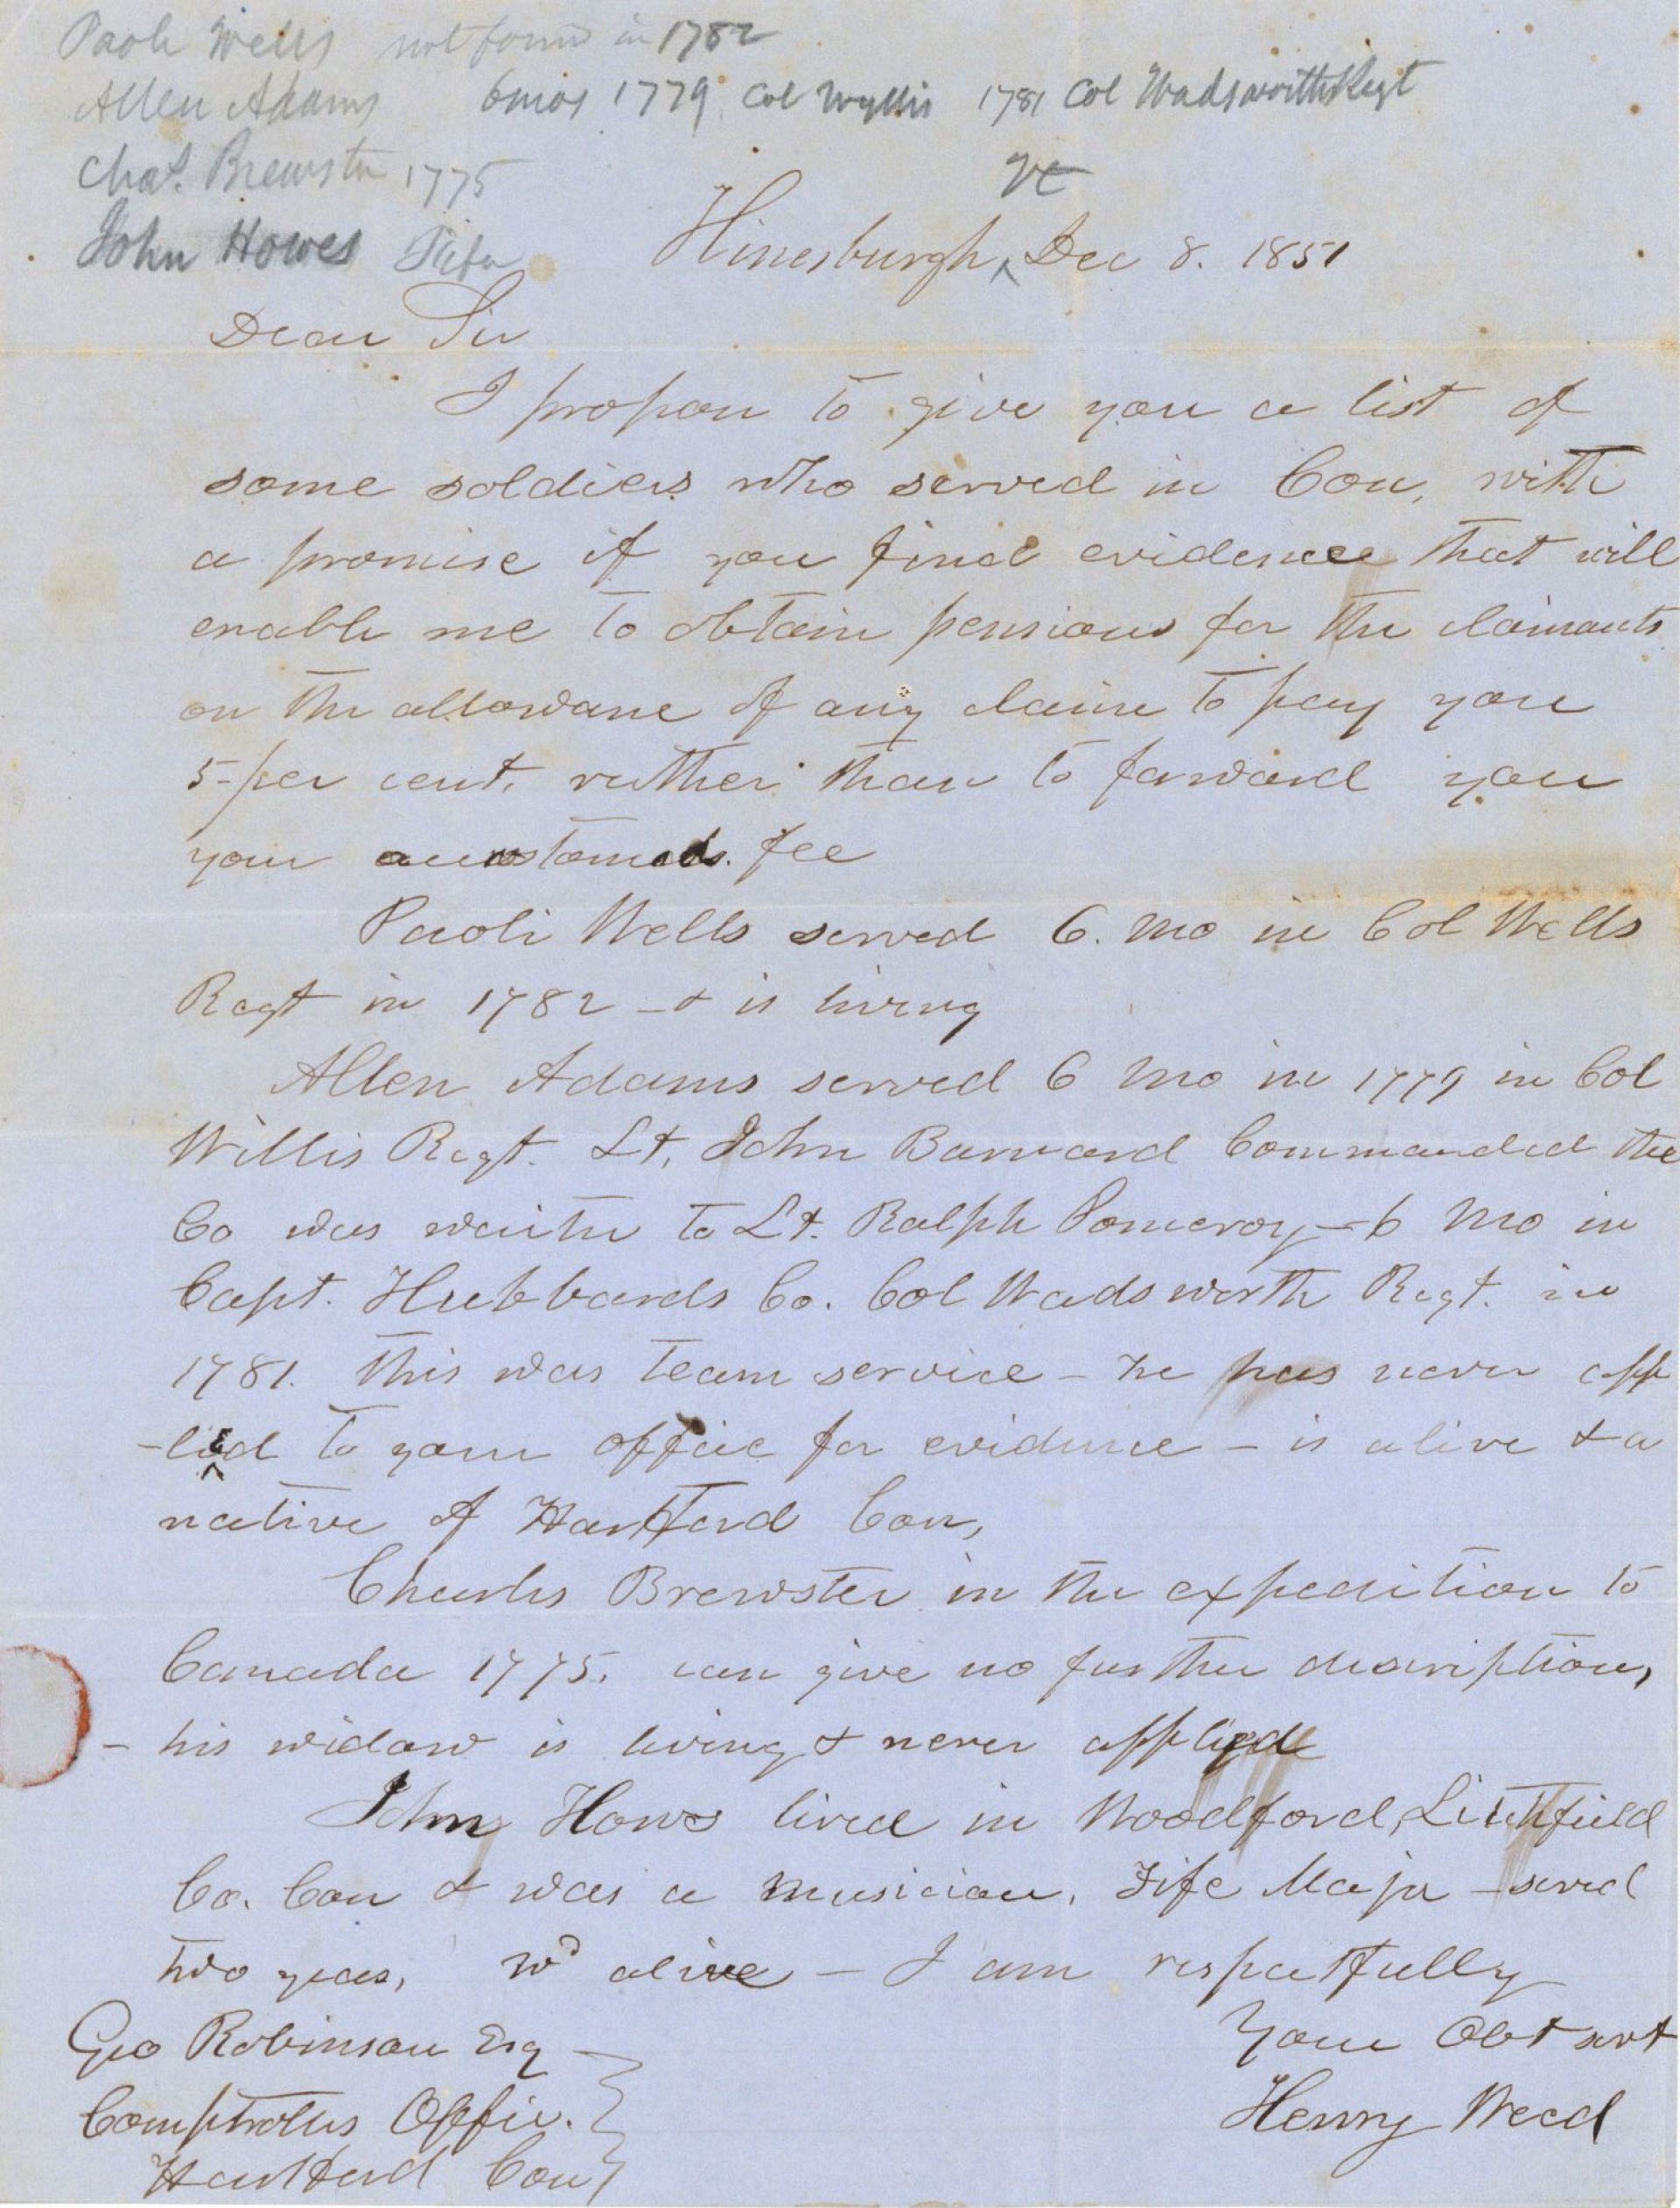 Paoli Wells not found in 1782
Allen Adams 6 mos 1779 Col Wyllis 1781 Col Wadsworths Regt
Chas. Brewster 1775
Vt
John Howes Fifer
Hinesburgh, Dec 8. 1851
Dear Sir
I propose to give you a list of
some soldiers who served in Con, with
a promise if you find evidence that will
enable me to obtain pensions for the claimants
on the allowance of any claim to pay you
5-per cent. rather than to forward you
your accustomed fee
Paoli Wells served 6. mo in Col Wells
Regt in 1782 - & is living
Allen Adams served 6 mo in 1779 in Col
Willis Regt. Lt, John Barnard Commanded the
Co was waiter to Lt. Ralph Pomeroy - 6 mo in
Capt. Hubbards Co. Col Wadsworth Regt. in
1781. this was team service - he has never app
-lied to your office for evidence - is alive & a
native of Hartford Con,
Charles Brewster in the expedition to
Canada 1775. can give no further description,
- his widow is living & never applied
John Hows lived in Woodford, Litchfield
Co. Con & was a musician. Fife Major - served
two years, wd alive - I am respectfully
Your Obt svt
Henry Weed
Geo Robinson Esq
Comptrollers Office.
Hartford Con